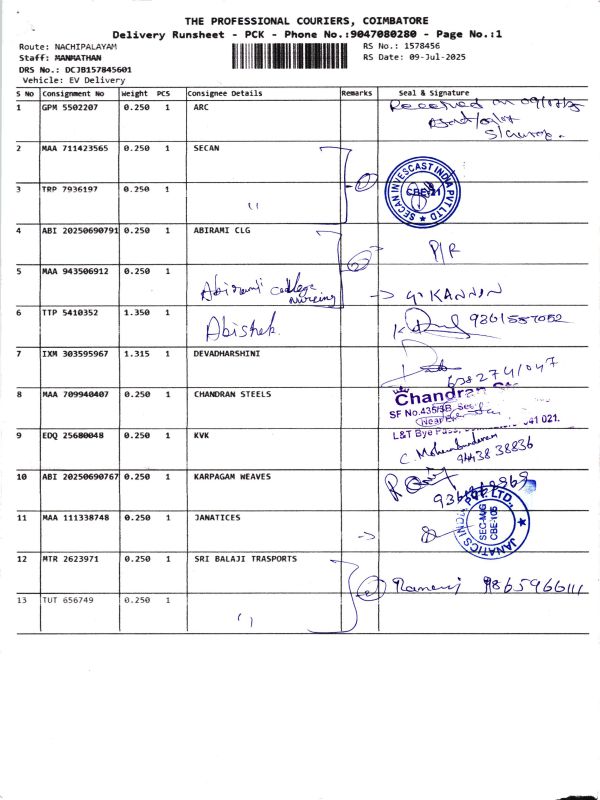 THE PROFESSIONAL COURIERS, COIMBATORE
Delivery Runsheet - PCK - Phone No.:9047080280 - Page No.:1
Route: NACHIPALAYAM
RS No.: 1578456
Staff: MANMATHAN
RS Date: 09-Jul-2025
DRS No.: DCJB157845601
Vehicle: EV Delivery
S No Consignment No Weight PCS Consignee Details Remarks Seal & Signature
1 GPM 5502207 0.250 1 ARC Received on 09/07/25
2 MAA 711423565 0.250 1 SECAN
SECAN INVESCAST INDIA PVT LTD
CBE-21
3 TRP 7936197 0.250 1 "
4 ABI 20250690791 0.250 1 ABIRAMI CLG P/R
5 MAA 943506912 0.250 1 Abirami college
nursing
KANNAN
6 TTP 5410352 1.350 1 Abishek 9361557052
7 IXM 303595967 1.315 1 DEVADHARSHINI
8 MAA 709940407 0.250 1 CHANDRAN STEELS Chandran
SF No.435/3B,
L&T Bye Pass, 641 021.
9 EDQ 25680048 0.250 1 KVK C. Mohanasundaram
94438 38836
10 ABI 20250690767 0.250 1 KARPAGAM WEAVES
11 MAA 111338748 0.250 1 JANATICES
JANATICS INDIA PVT. LTD.,
SEC-M/G
CBE-105
12 MTR 2623971 0.250 1 SRI BALAJI TRASPORTS 9865966111
13 TUT 656749 0.250 1 "